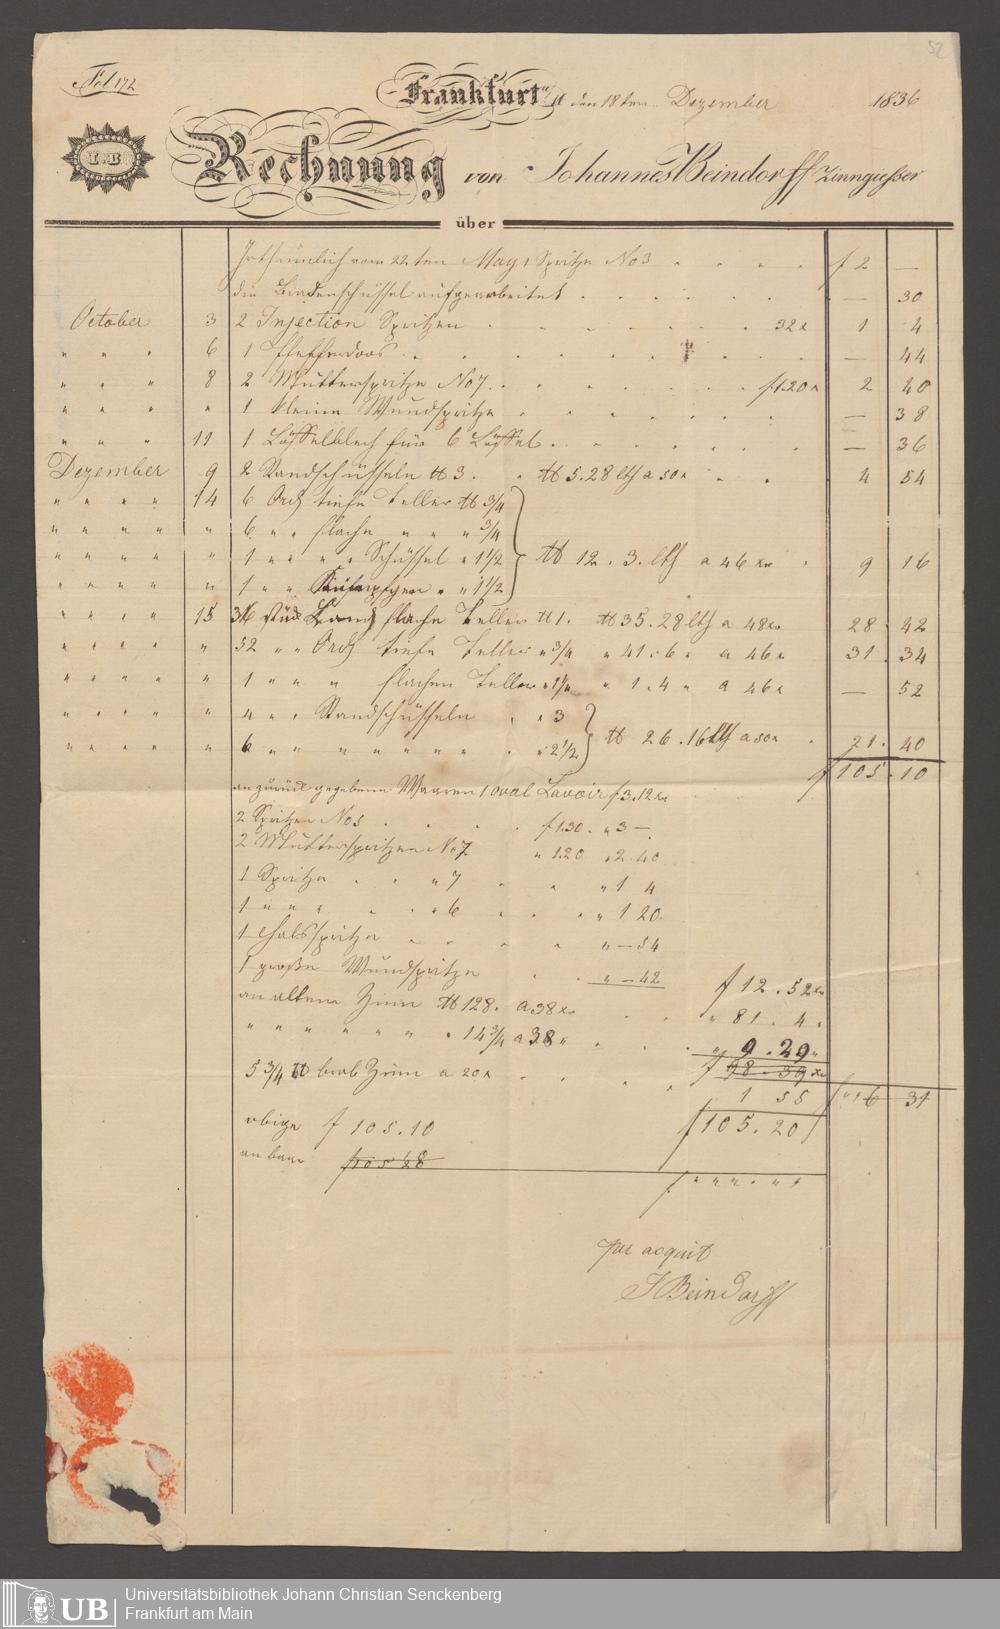 52
Fol 172
Frankfurt a/M den 18ten Dezember 1836
I•B
Rechnung von Johannes Beindorff Zinngiesser
über
vom 22ten May 1 Spritze No 3 f 2 —
die Bradenschüssel aufgearbeitet — 30
October 3 2 Injection Spritzen 32x 1 4
" " " 6 1 Pfefferdoos — 44
" " " 8 2 Mutterspritze No 7 f 1.20x 2 40
" " " " 1 kleine Wundspritze — 38
" " " 11 1 Löffelblech für 6 Löffel — 36
Dezember 9 2 Randschüsseln ℔ 3 ℔ 5.28 lth a 50x 4 54
" " " " 14 6 Ord tiefe Teller ℔ 3/4
" " " " " 6 " " flache " " " 3/4
" " " " " 1 " " " Schüssel " 1 1/2 ℔ 12.3. lth a 46 xr 9 16
" " " " " 1 " " " 1 1/2
" " " " 15 36 stück Rand flache Teller ℔ 1. ℔ 35.28 lth a 48xr 28 42
" " " " " 52 " " Ord tiefe Teller " 3/4 " 41.6 " a 46x 31.34
" " " " " 1 " " " flachen Teller " 1 1/4 " 1.4 " a 46x — 52
" " " " " 4 " " Randschüsseln " " 3
" " " " " 6 " " " " " " " " 2 1/2 ℔ 26.16 lth a 50x 21.40
f 105.10
an zurück gegebene Waaren 1 oval Lavoir f 3.12 xr
2 Spritzen No 5 f 1.30. " 3 —
2 Mutterspritzen No 7 " 1.20 " 2.40
1 Spritze " " " 7 " " " 1 4
1 " " " " " " 6 " " " 1 20.
1 Halsspritze " " " " " — 54
1 große Wundspritze " — 42 f 12.52xr
an altem Zinn ℔ 128. a 38xr " 81.4"
" " " " " " " 14 3/4 a 38 " " 9.20"
f 98.39 xr
5 3/4 ℔ brab Zinn a 20x 1 55 f " " 6 31
obige f 105.10 f 105.20
an baar f 105 28
f " " " " "
per acquit
J Beindorff
Universitätsbibliothek Johann Christian Senckenberg
Frankfurt am Main
UB